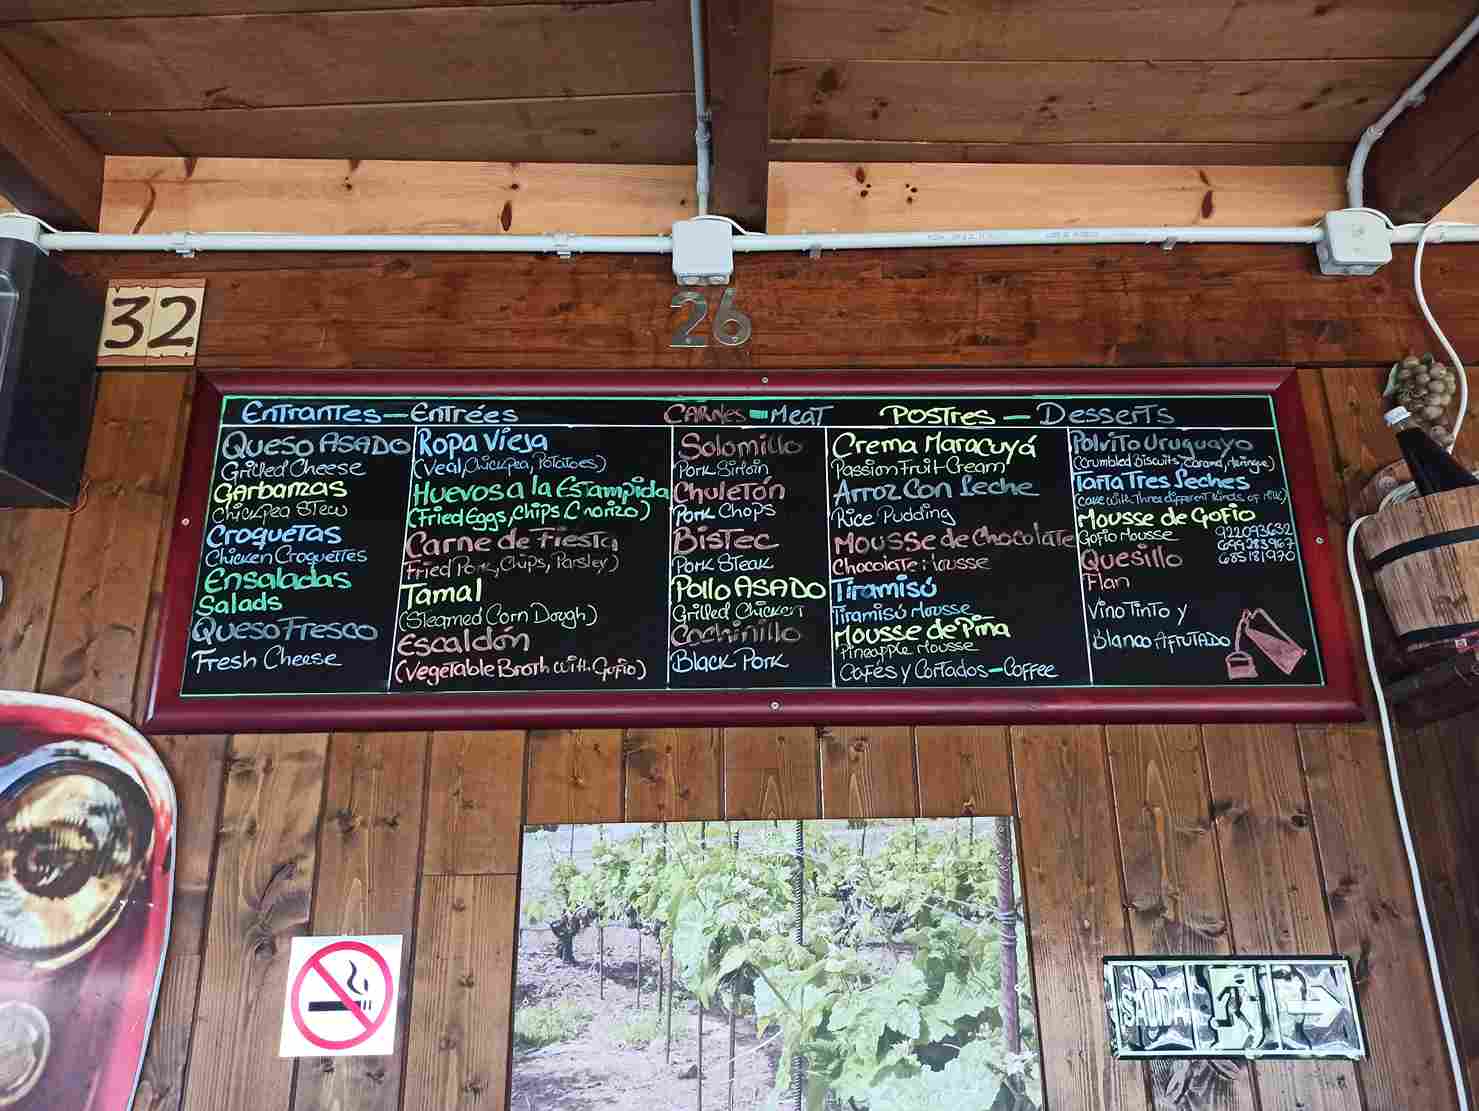 32
26
Entrantes — Entrées
Queso Asado
Grilled Cheese
Garbamzas
Chickpea Stew
Croquetas
Chicken Croquettes
Ensaladas
Salads
Queso Fresco
Fresh Cheese
Ropa Vieja
(Veal, Chickpea, Potatoes)
Huevos a la Estampida
(Fried Eggs, Chips, Chorizo)
Carne de Fiesta
Fried Pork, Chips, Parsley)
Tamal
(Steamed Corn Dough)
Escaldón
(Vegetable Broth with Gofio)
Carnes — Meat
Solomillo
Pork Sirloin
Chuletón
Pork Chops
Bistec
Pork Steak
Pollo Asado
Grilled Chicken
Cochinillo
Black Pork
Postres — Desserts
Crema Maracuyá
Passion Fruit Cream
Arroz Con Leche
Rice Pudding
Mousse de Chocolate
Chocolate Mousse
Tiramisú
Tiramisú Mousse
Mousse de Piña
Pineapple Mousse
Cafés y Cortados — Coffee
Polvito Uruguayo
(Crumbled Biscuits, Caramel, Meringue)
Tarta Tres Leches
(Cake with Three different Kinds of Milk)
Mousse de Gofio
Gofio Mousse
922093632
699383967
685181970
Quesillo
Flan
Vino Tinto y
Blanco Afrutado
SALIDA